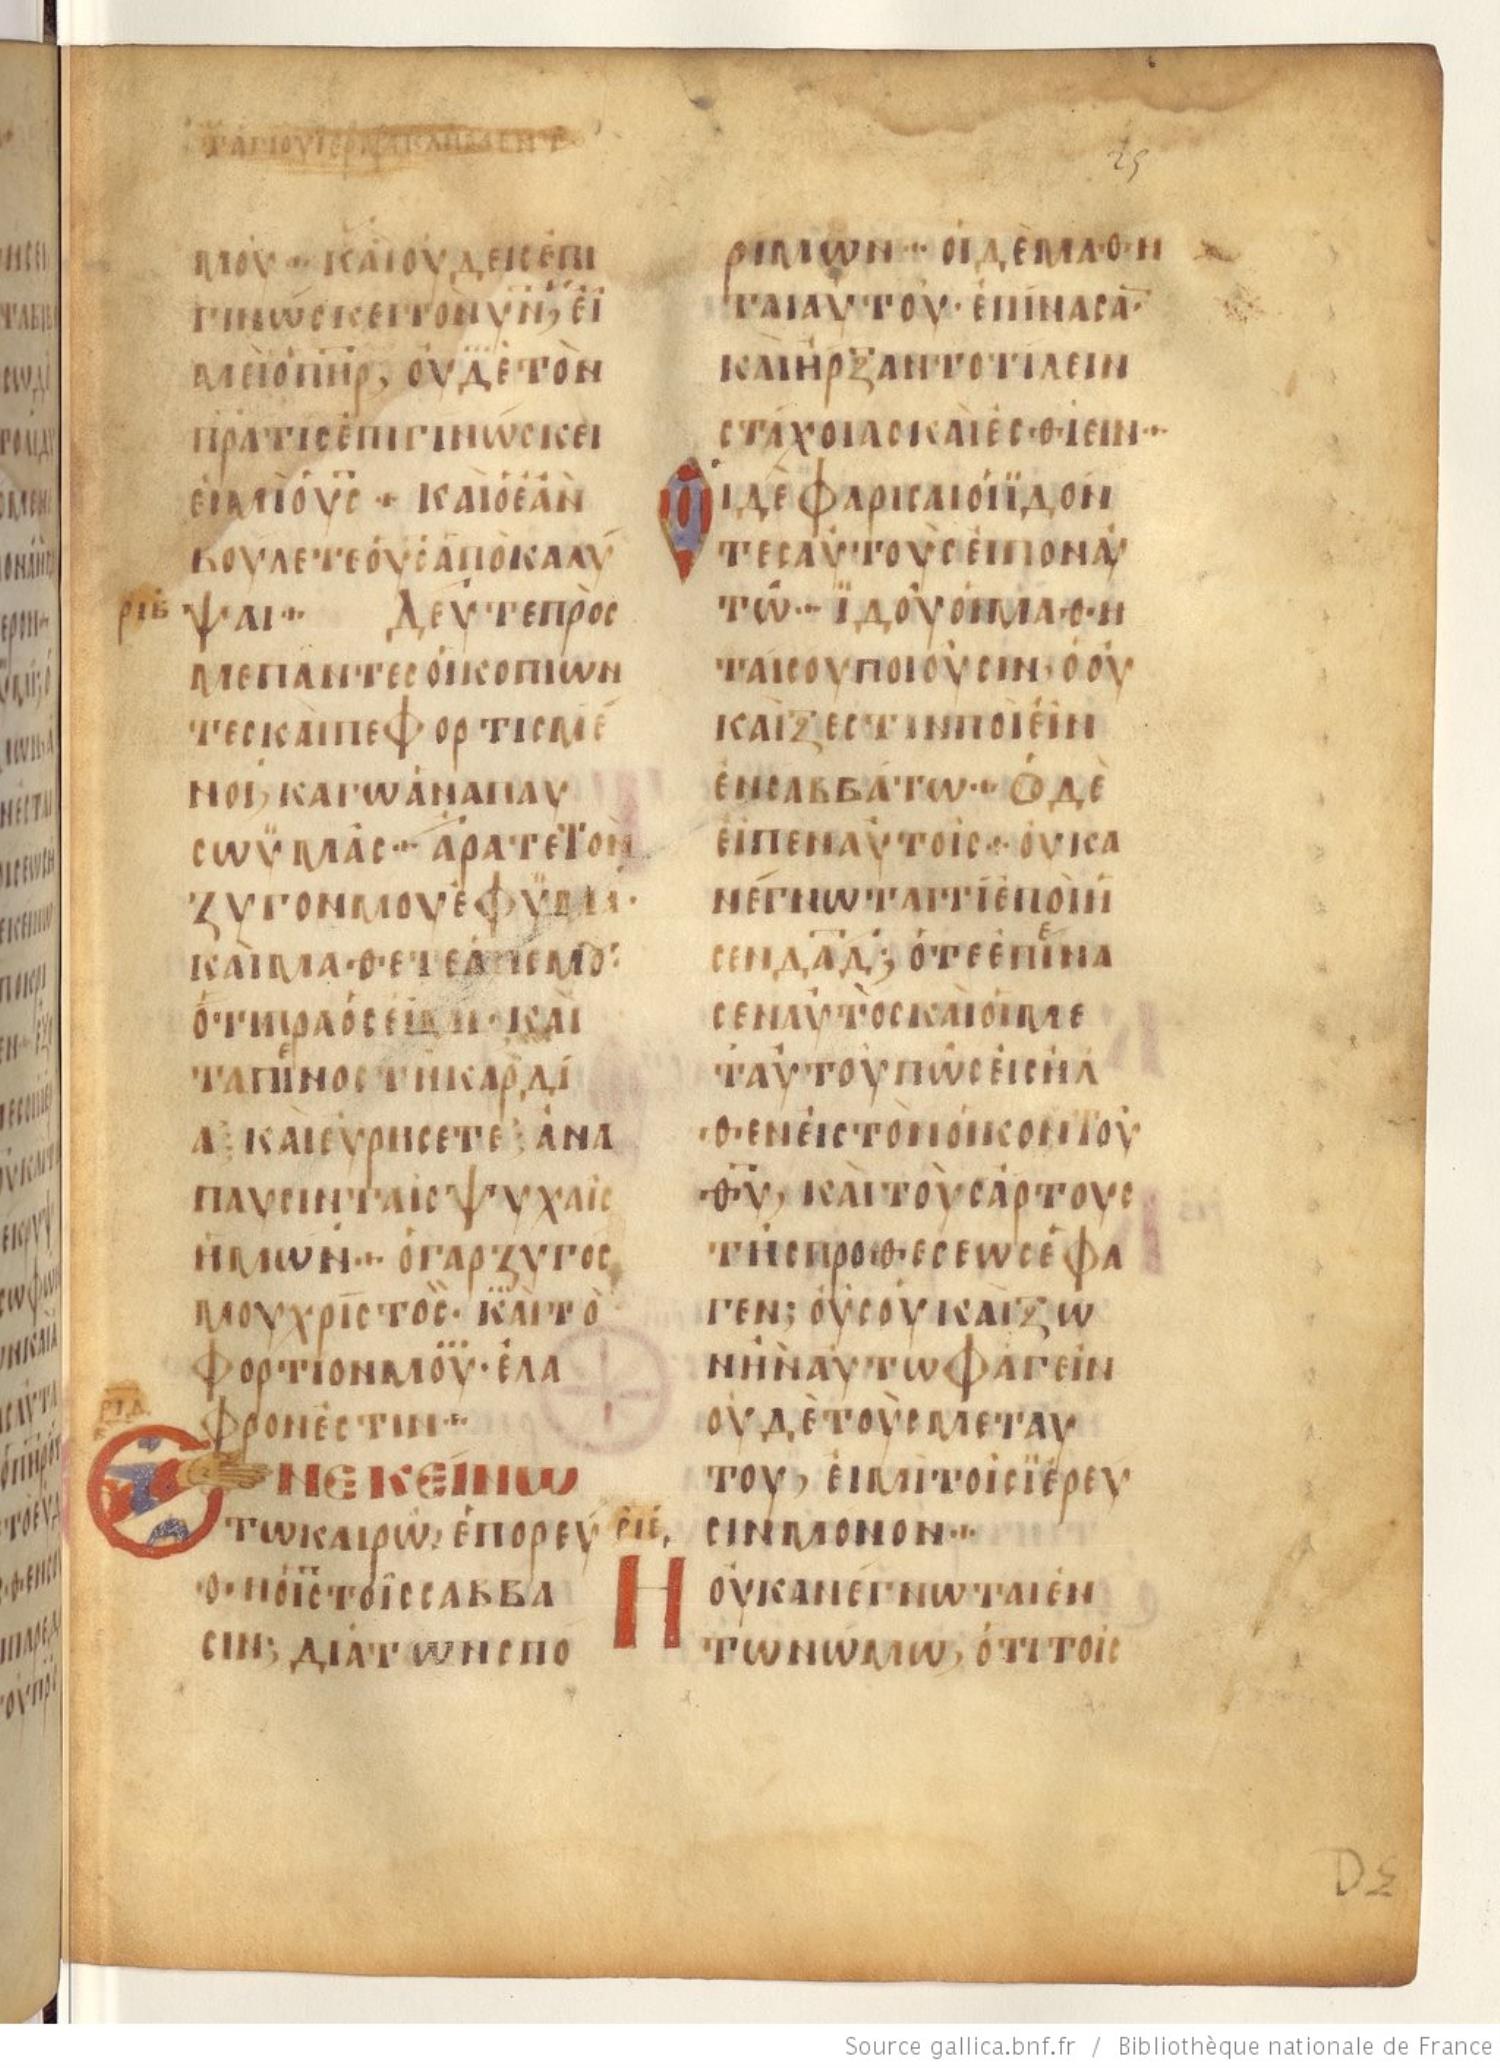 ΤΑΓΙΟΥΙΕΡΜΑΚΛΗΜΕΝΤ
25
ΜΟΥ·· ΚΑΙΟΥΔΕΙCΕΠΙ
ΓΙΝΩCΚΕΙΤΟΝΥΝ, ΕΙ
ΜΕΙΟΠΗΡ, ΟΥΔΕΤΟΝ
ΠΡΑΤΙCΕΠΙΓΙΝΩCΚΕΙ
ΕΙΜΙΟΥC·· ΚΑΙΟΕΑΝ
ΒΟΥΛΕΤΕΟΥCΑΠΟΚΑΛΥ
ΡΙΒ ΨΑΙ·· ΔΕΥΤΕΠΡΟC
ΜΕΠΑΝΤΕCΟΙΚΟΠΙΩΝ
ΤΕCΚΑΙΠΕΦΟΡΤΙCΜΕ
ΝΟΙ, ΚΑΓΩΑΝΑΠΑΥ
CΩΫΜΑC·· ΑΡΑΤΕΤΟΝ
ΖΥΓΟΝΜΟΥΕΦΫΜΑ·
ΚΑΙΜΑΘΕΤΕΑΠΕΜΟ·
ΟΤΙΠΡΑΟCΕΙΜΙ·ΚΑΙ
ΤΑΠΙΝΟCΤΗΚΑΡΔΙ
Α; ΚΑΙΕΥΡΗCΕΤΕ; ΑΝΑ
ΠΑΥCΙΝΤΑΙCΨΥΧΑΙC
ΗΜΩΝ·· ΟΓΑΡΖΥΓΟC
ΜΟΥΧΡΙCΤΟC·ΚΑΙΤΟ
ΦΟΡΤΙΟΝΜΟΥ·ΕΛΑ
ΡΙΔ
ΦΡΟΝΕCΤΙΝ··
ΕΝΕΚΕΙΝΩ
ΤΩΚΑΙΡΩ, ΕΠΟΡΕΥ
ΘΗΟΙCΤΟΙCCΑΒΒΑ
CΙΝ; ΔΙΑΤΩΝCΠΟ
ΡΙΜΩΝ·· ΟΙΔΕΜΑΘΗ
ΤΑΙΑΥΤΟΥ·ΕΠΙΝΑCΑ·
ΚΑΙΗΡΞΑΝΤΟΤΙΛΕΙΝ
CΤΑΧΟΙΑCΚΑΙΕCΘΙΕΙΝ··
ΟΙΔΕΦΑΡΙCΑΙΟΙΪΔΟΝ
ΤΕCΑΥΤΟΥCΕΙΠΟΝΑΥ
ΤΩ·· ΪΔΟΥΟΙΜΑΘΗ
ΤΑΙCΟΥΠΟΙΟΥCΙΝ, ΟΟΥ
ΚΑΙΞΕCΤΙΝΠΟΙΕΙΝ
ΕΝCΑΒΒΑΤΩ·· ΟΔΕ
ΕΙΠΕΝΑΥΤΟΙC·· ΟΥΚΑ
ΝΕΓΝΩΤΑΙΤΙΕΠΟΙΗ
CΕΝΔΑΔ; ΟΤΕΕΠΙΝΑ
CΕΝΑΥΤΟCΚΑΙΟΙΜΕ
ΤΑΥΤΟΥΠΩCΕΙCΗΛ
ΘΕΝΕΙCΤΟΝΟΙΚΟΝΤΟΥ
ΘΥ, ΚΑΙΤΟΥCΑΡΤΟΥC
ΤΗCΠΡΟΘΕCΕΩCΕΦΑ
ΓΕΝ; ΟΥCΟΥΚΑΙΞΩ
ΝΗΝΑΥΤΩΦΑΓΕΙΝ
ΟΥΔΕΤΟΥCΜΕΤΑΥ
ΤΟΥ, ΕΙΜΙΤΟΙCΪΕΡΕΥ
ΡΙΕ, CΙΝΜΟΝΟΝ··
Η ΟΥΚΑΝΕΓΝΩΤΑΙΕΝ
ΤΩΝΩΜΩ, ΟΤΙΤΟΙC
Source gallica.bnf.fr / Bibliothèque nationale de France